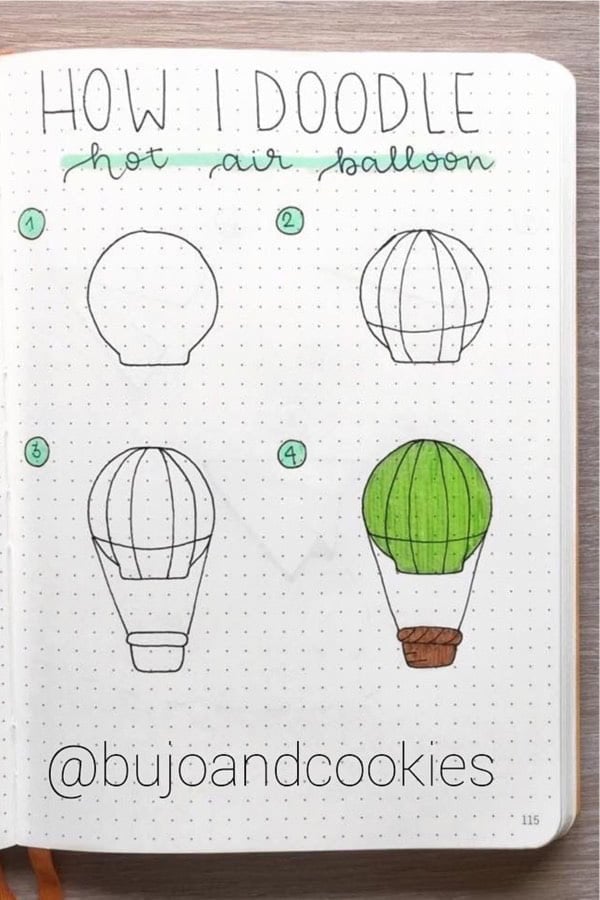 HOW I DOODLE
hot air balloon
1
2
3
4
@bujoandcookies
115